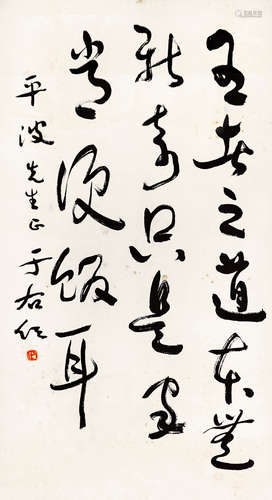 者之道本無
新奇只是家
常便飯耳
平波先生正 于右任